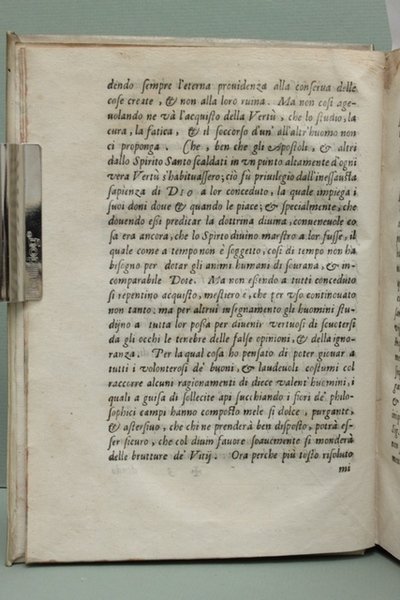 dendo sempre l'eterna prouidenza alla conserua delle
cose create, & non alla loro ruina. Ma non così age-
uolando ne và l'acquisto della Vertù, che lo studio, la
cura, la fatica, & il soccorso d'un' all'altr'huomo non
ci proponga. Che, ben che gli Apostoli, & altri
dallo Spirito Santo scaldati in vn punto altamente d'ogni
vera Vertù s'habituassero; ciò fù priuilegio dall'inessausta
sapienza di DIO a lor conceduto, la quale impiega i
suoi doni doue & quando le piace; & specialmente, che
douendo essi predicar la dottrina diuina, conueneuole co
sa era ancora, che lo Spirto diuino maestro a lor fusse, il
quale come a tempo non è soggetto, così di tempo non ha
bisogno per dotar gli animi humani di sourana, & in-
comparabile Dote. Ma non essendo a tutti conceduto
sì repentino acquisto, mestiero è, che per vso continouato
non tanto, ma per altrui insegnamento gli huomini stu-
dijno a tutta lor possa per diuenir vertuosi di scuotersi
da gli occhi le tenebre delle false opinioni, & della igno-
ranza. Per la qual cosa ho pensato di poter giouar a
tutti i volonterosi de' buoni, & laudeuoli costumi col
raccorre alcuni ragionamenti di diece valent'huomini,
i quali a guisa di sollecite api succhiando i fiori de' philo-
sophici campi hanno composto mele sì dolce, purgante,
& astersiuo, che chi ne prenderà ben disposto, potrà es-
ser sicuro, che col diuin fauore soauemente si monderà
delle brutture de' Vitij. Ora perche più tosto risoluto
mi